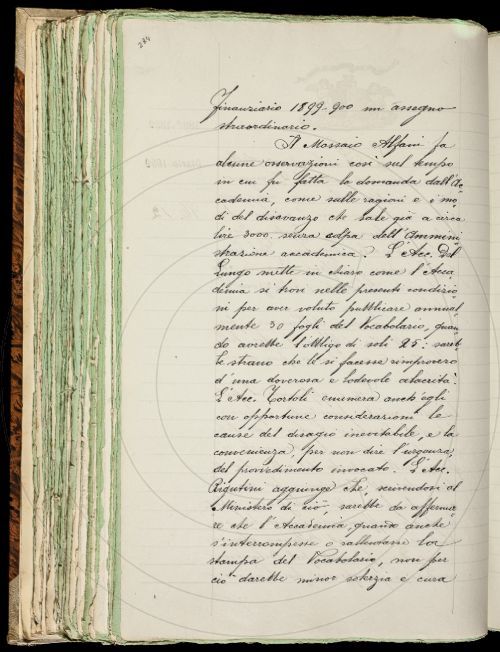 284
finanziario 1899-900 un assegno
straordinario.
Il Massaio Alfani fa
alcune osservazioni così sul tempo
in cui fu fatta la domanda dall'Ac-
cademia, come sulle ragioni e i mo-
di del disavanzo che sale già a circa
lire 3000, senza colpa dell'Ammini-
strazione accademica. L'Acc. Del
Lungo mette in chiaro come l'Acca-
demia si trovi nelle presenti condizio-
ni per aver voluto pubblicare annual-
mente 30 fogli del Vocabolario, quan-
do avrebbe l'obbligo di soli 25: sareb-
be strano che le si facesse rimprovero
d'una doverosa e lodevole alacrità.
L'Acc. Tortoli enumera anch'egli
con opportune considerazioni le
cause del disagio inevitabile, e la
convenienza, per non dire l'urgenza,
del provvedimento invocato. L'Acc.
Rigutini aggiunge che, scrivendosi al
Ministero di ciò, sarebbe da afferma-
re che l'Accademia, quando anche
s'interrompesse o rallentasse la
stampa del Vocabolario, non per
ciò darebbe minor solerzia e cura